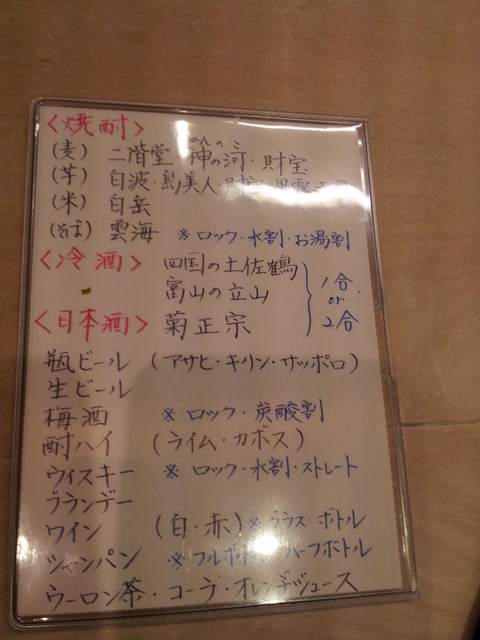 <焼酎>
(麦) 二階堂・神の河・財宝
(芋) 白波・島美人・財宝・黒霧島
(米) 白岳
(そば) 雲海 ※ロック・水割・お湯割
<冷酒> 四国の土佐鶴
富山の立山
1合
or
2合
<日本酒> 菊正宗
瓶ビール (アサヒ・キリン・サッポロ)
生ビール
梅酒 ※ロック・炭酸割
酎ハイ (ライム・カボス)
ウィスキー ※ロック・水割・ストレート
ブランデー
ワイン (白・赤) ※グラス・ボトル
シャンパン ※フルボトル・ハーフボトル
ウーロン茶・コーラ・オレンヂジュース